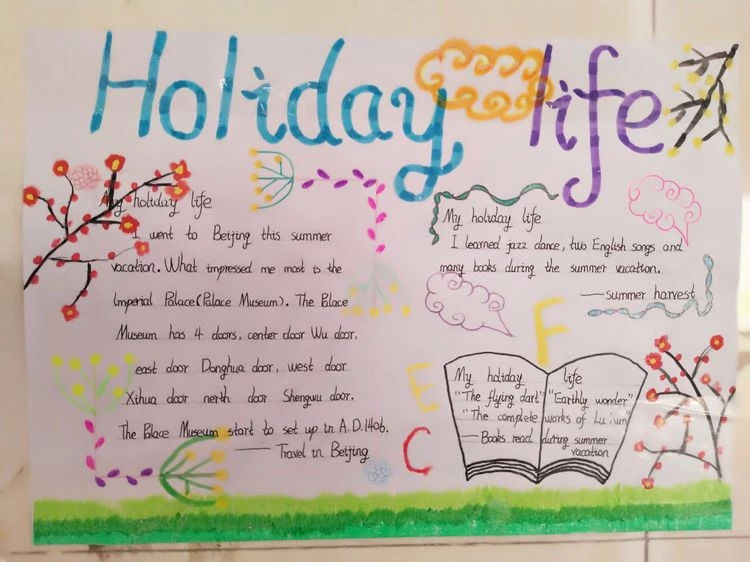 Holiday life
My holiday life
I went to Beijing this summer
vacation. What impressed me most is the
Imperial Palace(Palace Museum). The Palace
Museum has 4 doors, center door Wu door.
east door Donghua door, west door
Xihua door nerth door Shengwu door.
The Palace Museum start to set up in A.D.1406.
—— Travel in Beijing
My holiday life
I learned jazz dance, two English songs and
many books during the summer vacation.
——summer harvest
F
E
C
My holiday life
"The flying dart" "Earthly wonder"
"The complete works of Lu xun"
—Books read during summer
vacation